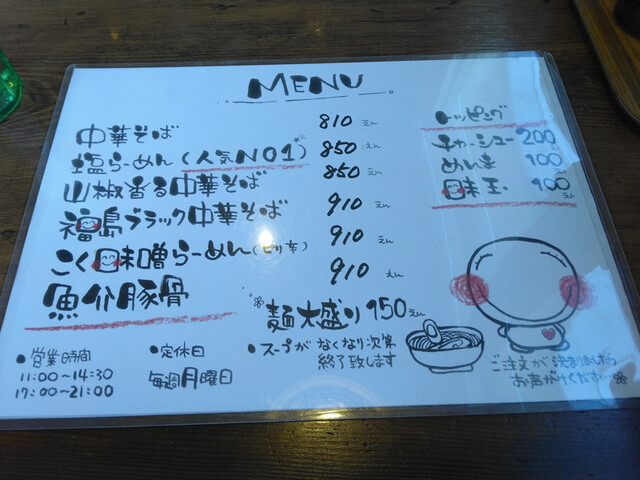 MENU
中華そば 810 えん
塩らーめん(人気NO1) 850 えん
山椒香る中華そば 850 えん
福島ブラック中華そば 910 えん
こく味噌らーめん(ピリ辛) 910 えん
魚介豚骨 910 えん
麺大盛り 150えん
トッピング
チャーシュー 200
めんま 100えん
味玉 100えん
・営業時間
11:00〜14:30
17:00〜21:00
・定休日
毎週月曜日
・スープがなくなり次第
終了致します
ご注文が決まりましたら
お声がけください